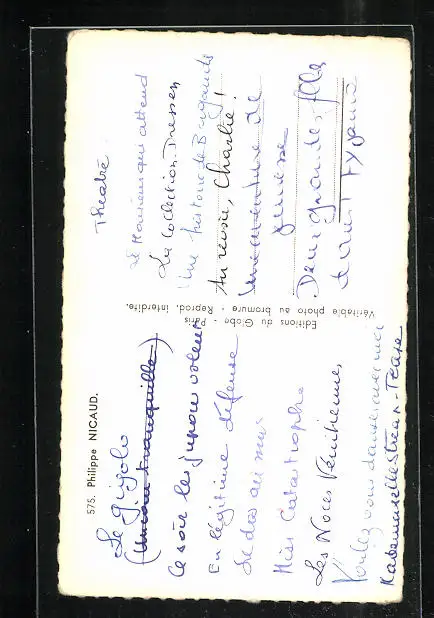 575. Philippe NICAUD.
Le Gigolo
(Un coin tranquille)
Ce soir les jupons volent
En légitime défense
Le dos au mur
Miss Catastrophe
Les Noces Vénitiennes
Voulez vous danser avec moi
Mademoiselle Strip-Tease
Editions du Globe - Paris
Véritable photo au bromure - Reprod. interdite.
Théatre:
qui attend
La Collection Dressen
Une histoire de Brigands
Au revoir, Charlie!
Une aventure de
jeunesse
Deux grandes filles
dans 1 Pyjama